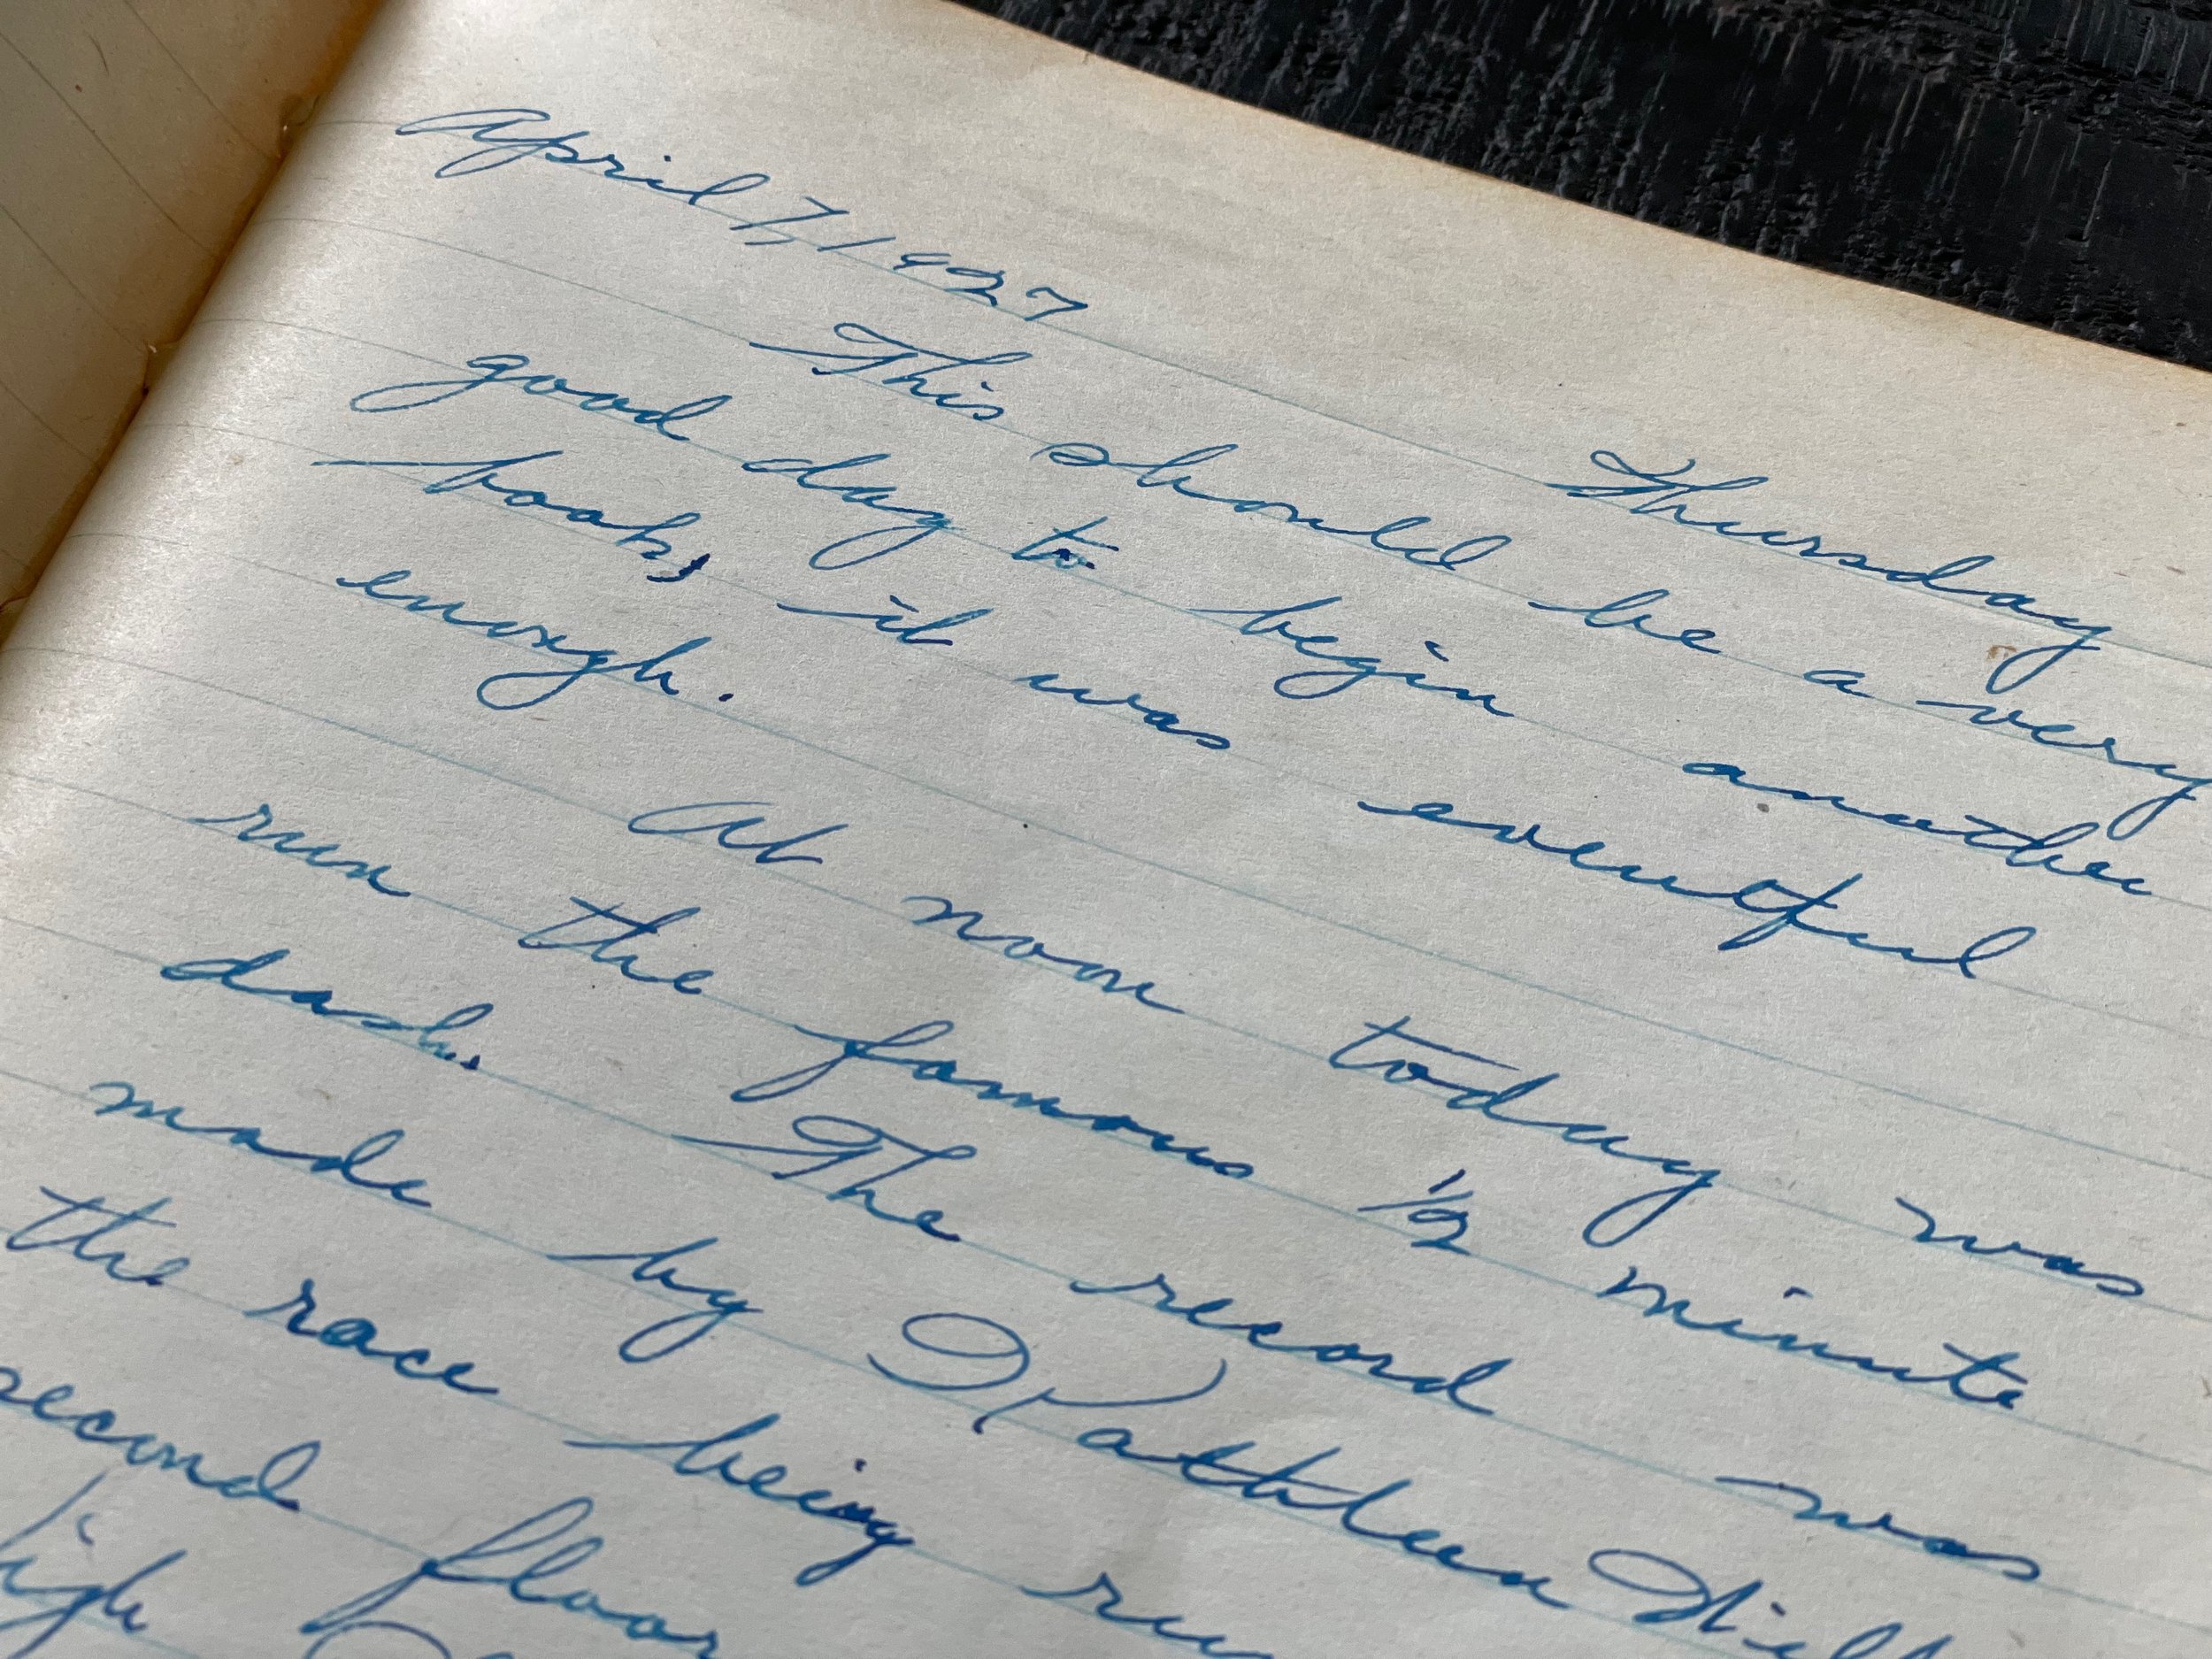 April 7, 1927
Thursday
This should be a very
good day to begin another
book, it was eventful
enough.
At noon today was
run the famous 1/2 minute
dash. The record was
made by Kathleen
the race being run
second floor